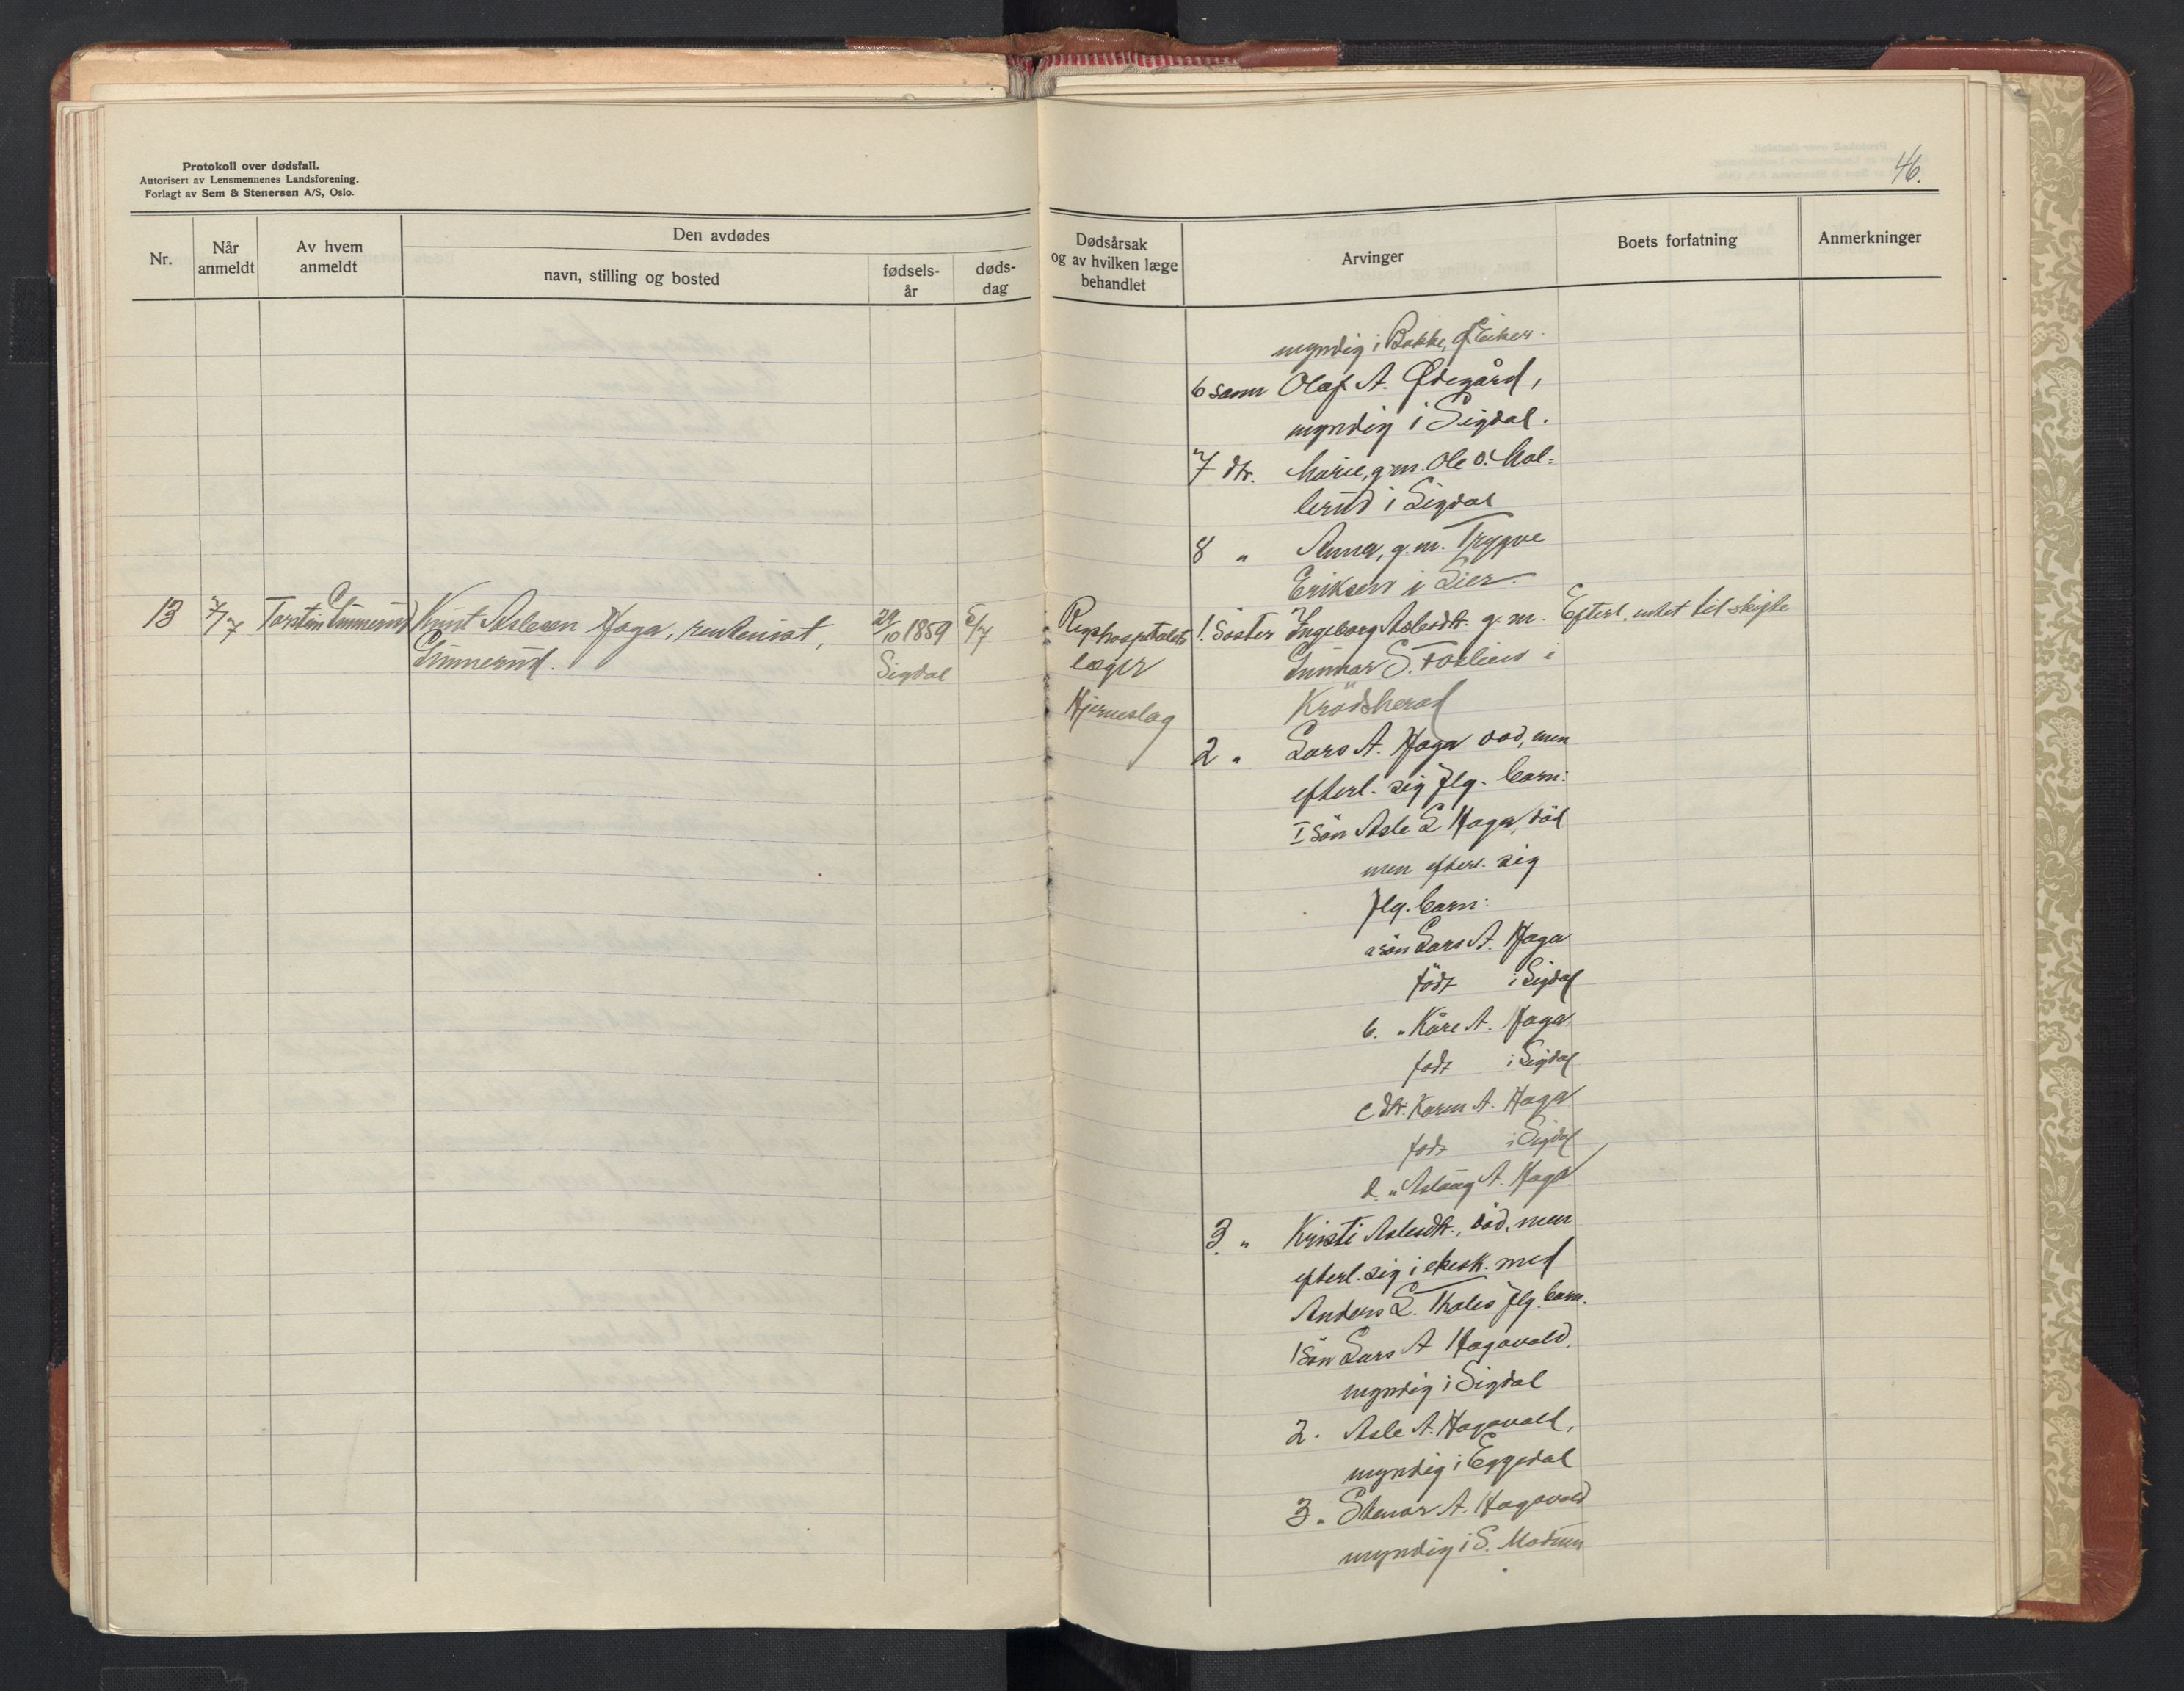 Protokoll over dødsfall.
Autorisert av Lensmennenes Landsforening.
Forlagt av Sem & Stenersen A/S, Oslo.
46.
Nr.
Når anmeldt
Av hvem anmeldt
Den avdødes
navn, stilling og bosted
fødsels-
år
døds-
dag
Dødsårsak
og av hvilken læge
behandlet
Arvinger
Boets forfatning
Anmerkninger
myndig i Bakke, Ø Eiker.
6 sønn Olaf A. Ødegård,
myndig i Sigdal.
7 dtr. Marie, g. m. Ole O.
lerud i Sigdal
8 " Anna, g. m. Trygve
Eriksen i Lier.
13 7/7 Torstein Knut Aslesen Haga, rentenist, 29/10 1859 5/7
Sigdal
Rikshospitalets
læger
Hjerneslag
1. Søster Ingeborg Aslesdtr. g. m.
Gunnar S. i
Krødsherad
Efterl. intet til skifte
2 " Lars A. Haga død, men
efterl. sig flg. barn:
I søn Asle L Haga, død
men efterl. sig
flg. barn:
a søn Lars A. Haga
født i Sigdal
b. " Kåre A. Haga
født i Sigdal
c dtr. Karen A. Haga
født i Sigdal
d. " Aslaug A. Haga
3 " Kristi Aslesdtr., död, men
efterl. sig i ektesk. med
Anders L. flg. barn.
1 søn Lars A Hagavold,
myndig i Sigdal
2. Asle A. Hagavold,
myndig i Eggedal
3. " Stenar A. Hagavold
myndig i S. Modum